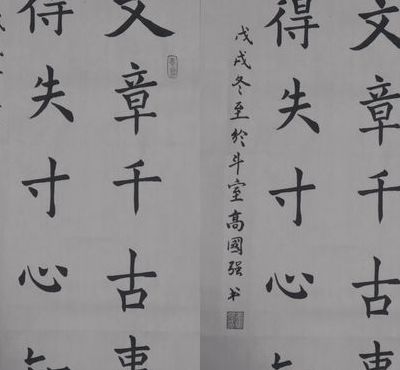 文章千古
得失寸心
戊戌冬至於斗室高國强书
文章千古
得失寸心